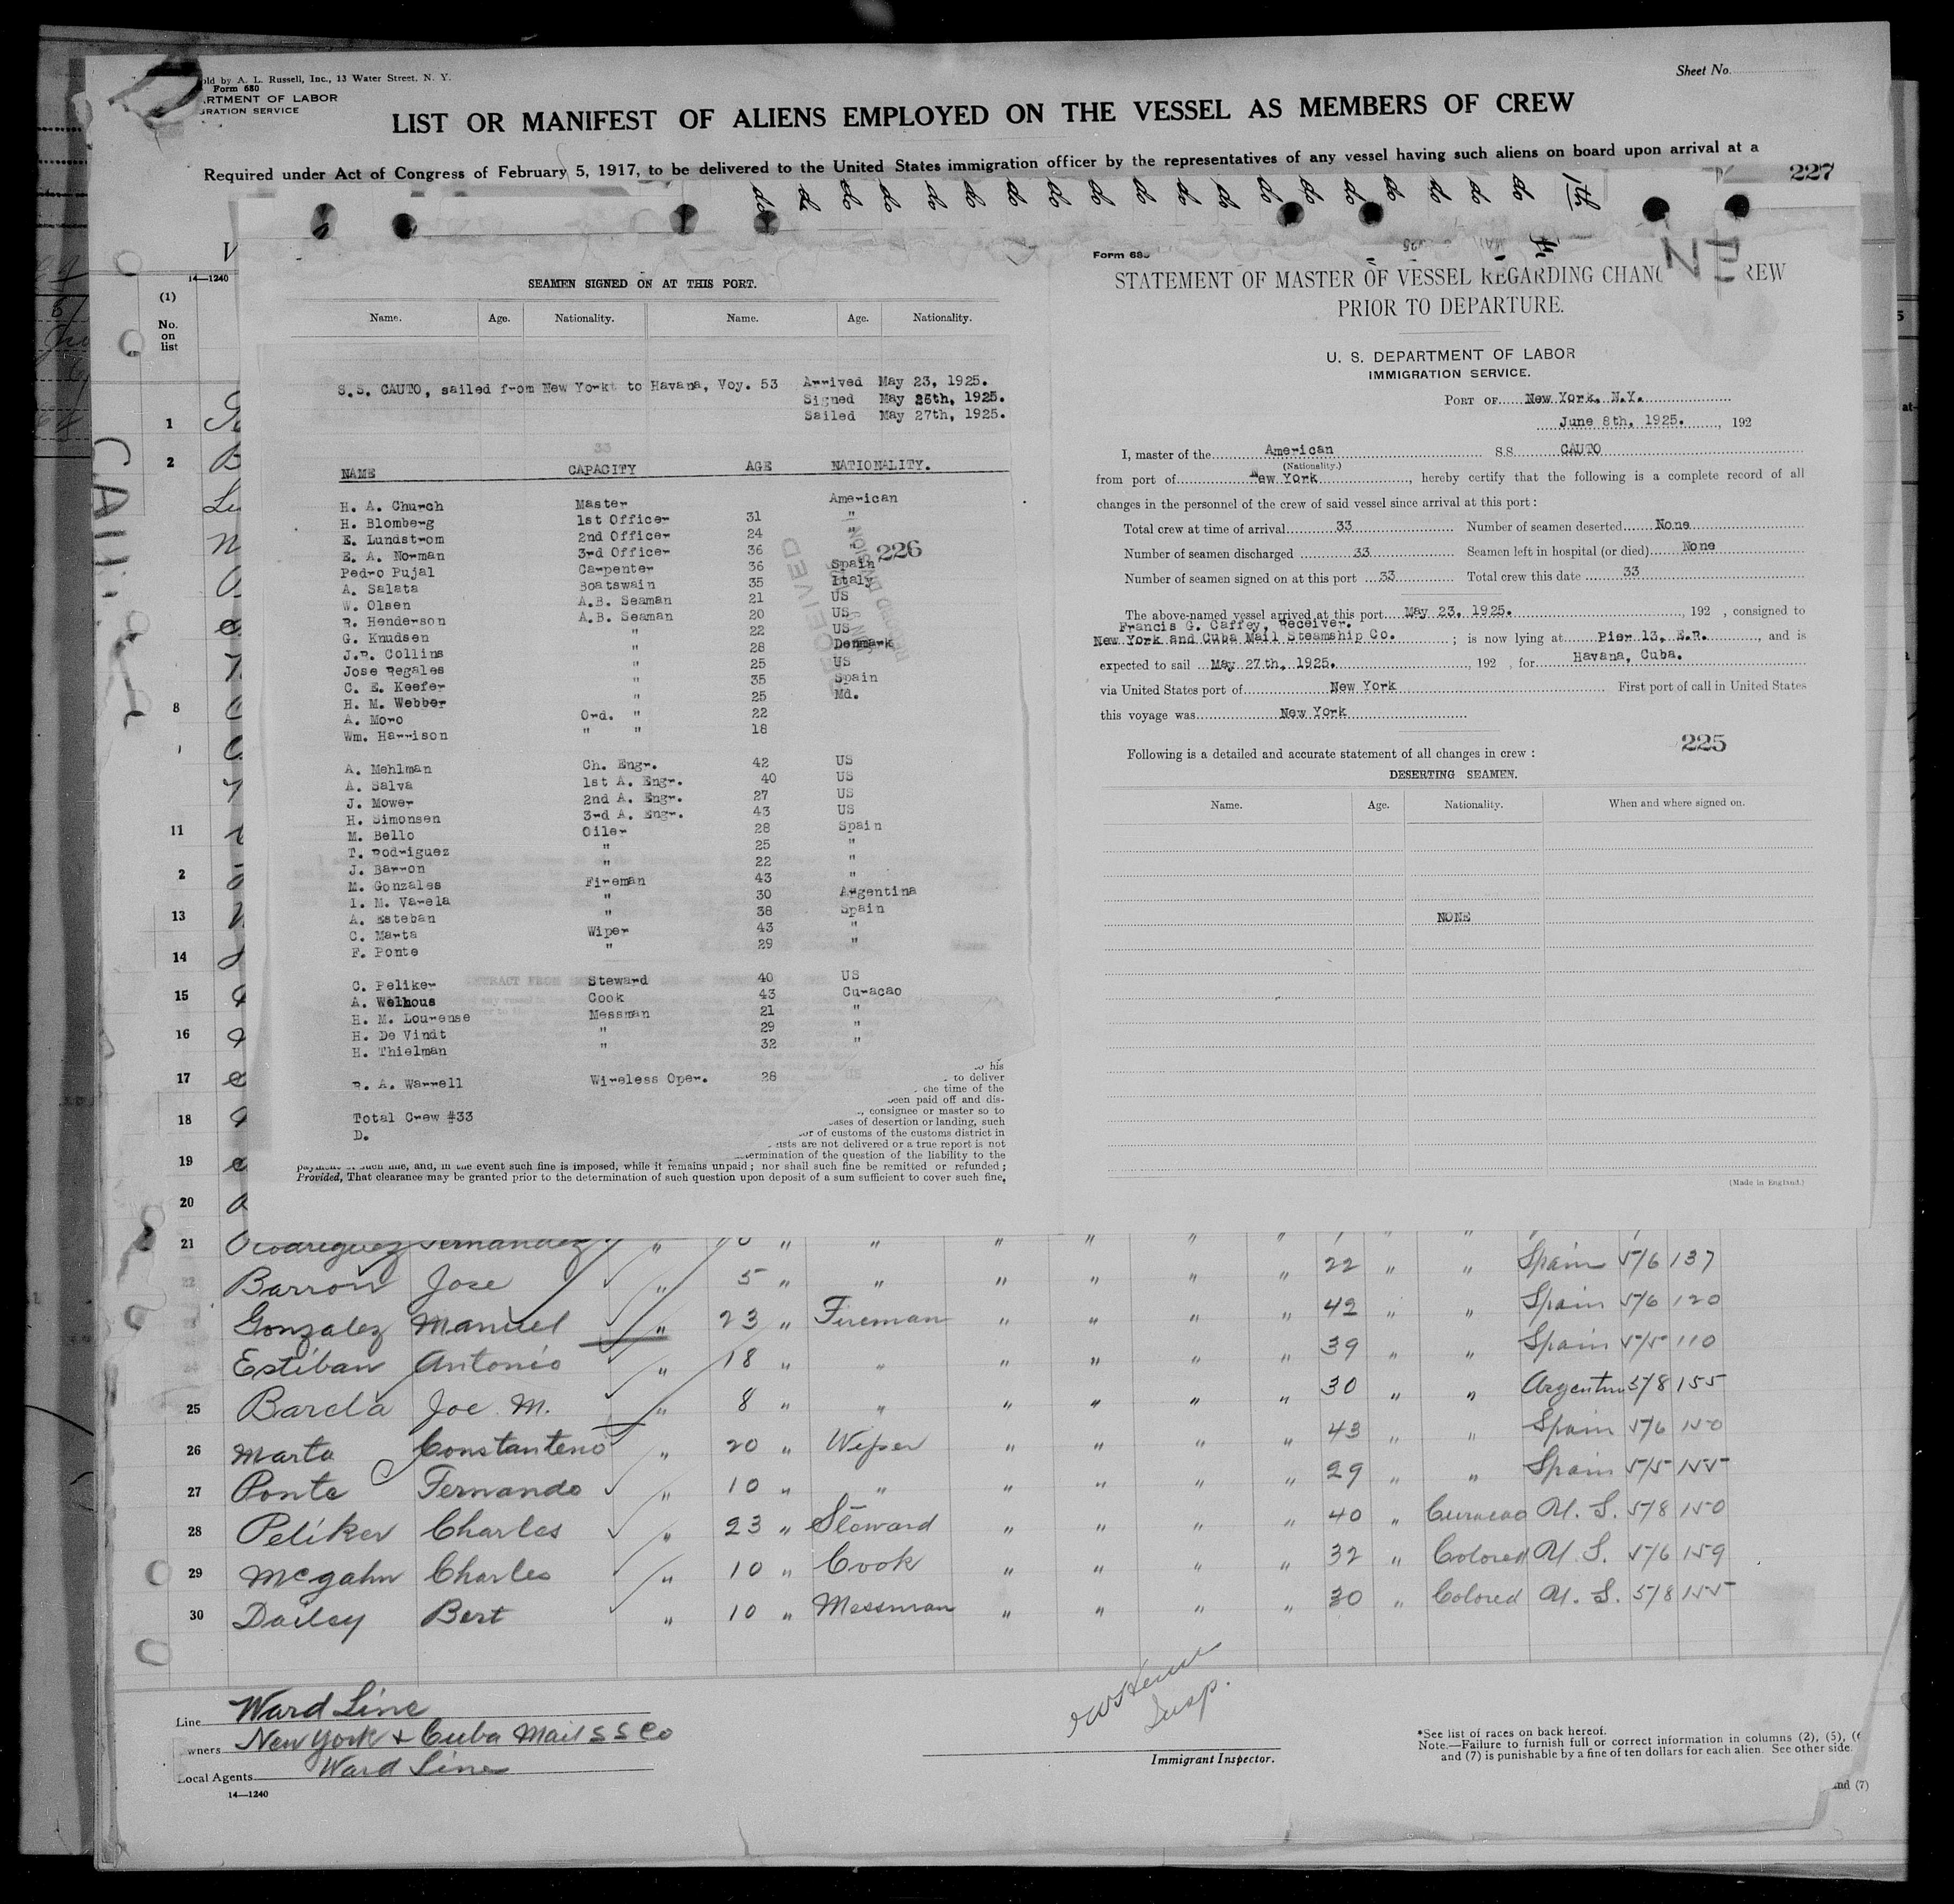 Sold by A. L. Russell, Inc., 13 Water Street, N. Y.
Form 680
DEPARTMENT OF LABOR
IMMIGRATION SERVICE
Sheet No.
LIST OR MANIFEST OF ALIENS EMPLOYED ON THE VESSEL AS MEMBERS OF CREW
Required under Act of Congress of February 5, 1917, to be delivered to the United States immigration officer by the representatives of any vessel having such aliens on board upon arrival at a
227
14—1240
(1)
No.
on
list
SEAMEN SIGNED ON AT THIS PORT.
Name. Age. Nationality. Name. Age. Nationality.
S.S. CAUTO, sailed from New York to Havana, Voy. 53 Arrived May 23, 1925.
Signed May 26th, 1925.
Sailed May 27th, 1925.
33
NAME CAPACITY AGE NATIONALITY.
H. A. Church Master American
H. Blomberg 1st Officer 31 "
E. Lundstrom 2nd Officer 24 "
E. A. Norman 3rd Officer 36 "
Pedro Pujal Carpenter 36 Spain
A. Salata Boatswain 35 Italy
W. Olsen A.B. Seaman 21 US
R. Henderson A.B. Seaman 20 US
G. Knudsen " 22 US
J.R. Collins " 28 Denmark
Jose Regales " 25 US
C. E. Keefer " 35 Spain
H. M. Webber " 25 Md.
A. Moro Ord. " 22
Wm. Harrison " " 18
A. Mehlman Ch. Engr. 42 US
A. Salva 1st A. Engr. 40 US
J. Mower 2nd A. Engr. 27 US
H. Simonsen 3rd A. Engr. 43 US
M. Bello Oiler 28 Spain
T. Rodriguez " 25 "
J. Barron " 22 "
M. Gonzales Fireman 43 "
I. M. Varela " 30 Argentina
A. Esteban " 38 Spain
C. Marta Wiper 43 "
F. Ponte " 29 "
C. Peliker Steward 40 US
A. Welhous Cook 43 Curacao
H. M. Lourense Messman 21 "
H. De Vindt " 29 "
H. Thielman " 32 "
R. A. Warrell Wireless Oper. 28 US
Total Crew #33
D.
226
RECEIVED
to his
to deliver
the time of the
been paid off and dis-
, consignee or master so to
cases of desertion or landing, such
or of customs of the customs district in
lists are not delivered or a true report is not
determination of the question of the liability to the
payment of such fine, and, in the event such fine is imposed, while it remains unpaid; nor shall such fine be remitted or refunded;
Provided, That clearance may be granted prior to the determination of such question upon deposit of a sum sufficient to cover such fine,
Form 68
STATEMENT OF MASTER OF VESSEL REGARDING CHANG REW
PRIOR TO DEPARTURE.
U. S. DEPARTMENT OF LABOR
IMMIGRATION SERVICE.
PORT OF New York, N.Y.
June 8th, 1925. , 192
I, master of the American SS CAUTO
(Nationality.)
from port of New York, hereby certify that the following is a complete record of all
changes in the personnel of the crew of said vessel since arrival at this port:
Total crew at time of arrival 33 Number of seamen deserted None
Number of seamen discharged 33 Seamen left in hospital (or died) None
Number of seamen signed on at this port 33 Total crew this date 33
The above-named vessel arrived at this port May 23, 1925. , 192 , consigned to
Francis G. Caffey, Receiver.
New York and Cuba Mail Steamship Co. ; is now lying at Pier 13, E.R. , and is
expected to sail May 27th, 1925. , 192 , for Havana, Cuba.
via United States port of New York First port of call in United States
this voyage was New York
225
Following is a detailed and accurate statement of all changes in crew:
DESERTING SEAMEN.
Name. Age. Nationality. When and where signed on.
NONE
(Made in England.)
1
2
8
11
2
13
14
15
16
17
18
19
20
21 Rodriguez Fernandez
22 Barron Jose " 5 " " " " " " 22 " " Spain 5/6 137
Gonzalez Manuel " 23 " Fireman " " " " 42 " " Spain 5/6 120
Estiban Antonio " 18 " " " " " " 39 " " Spain 5/5 110
25 Barcla Joe M. " 8 " " " " " " 30 " " Argentina 5/8 155
26 Marta Constanteno " 20 " Wiper " " " " 43 " " Spain 5/6 150
27 Ponte Fernando " 10 " " " " " " 29 " " Spain 5/5 155
28 Peliker Charles " 23 " Steward " " " " 40 " Curacao U. S. 5/8 150
29 McGahn Charles " 10 " Cook " " " " 32 " Colored U. S. 5/6 159
30 Dailey Bert " 10 " Messman " " " " 30 " Colored U. S. 5/8 155
Line Ward Line
Owners New York & Cuba Mail S S Co
Local Agents Ward Line
14—1240
Insp.
Immigrant Inspector.
*See list of races on back hereof.
Note.—Failure to furnish full or correct information in columns (2), (5), (6
and (7) is punishable by a fine of ten dollars for each alien. See other side.
and (7)